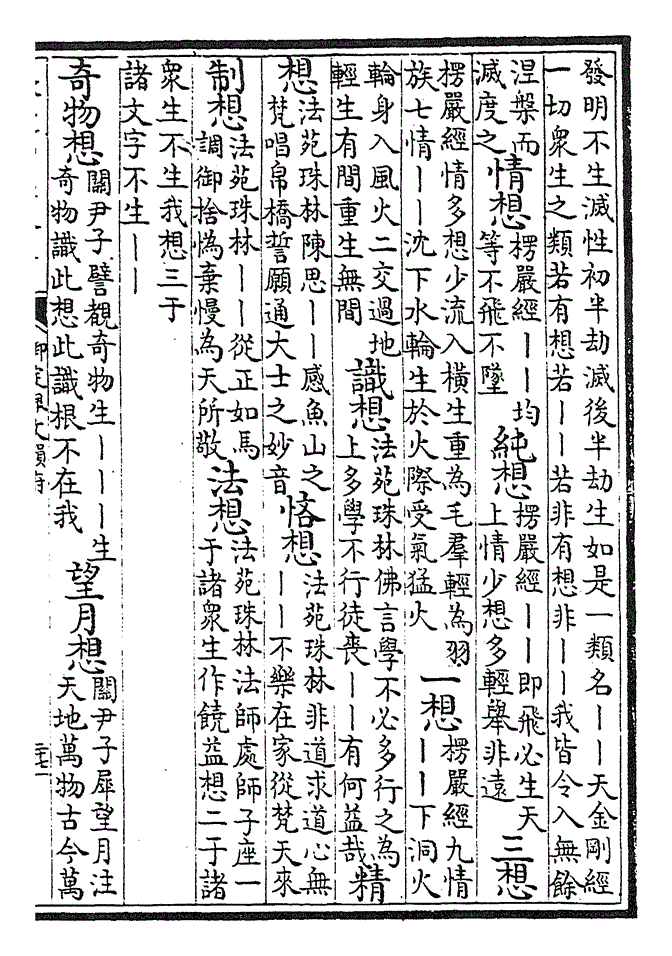 發明不生滅性初半劫滅後半劫生如是一類名｜｜天金剛經
一切衆生之類若有想若｜｜若非有想非｜｜我皆令入無餘
涅槃而
滅度之
情想
楞嚴經｜｜均
等不飛不墜
純想
楞嚴經｜｜即飛必生天
上情少想多輕舉非遠
三想
楞嚴經情多想少流入橫生重為毛羣輕為羽
族七情｜｜沈下水輪生於火際受氣猛火
一想
楞嚴經九情
｜｜下洞火
輪身入風火二交過地
輕生有間重生無間
識想
法苑珠林佛言學不必多行之為
上多學不行徒喪｜｜有何益哉
精
想
法苑珠林陳思｜｜感魚山之
梵唱帛橋誓願通大士之妙音
恡想
法苑珠林非道求道心無
｜｜不樂在家從梵天來
制想
法苑珠林｜｜從正如馬
調御捨憍棄慢為天所敬
法想
法苑珠林法師處師子座一
于諸衆生作饒益想二于諸
衆生不生我想三于
諸文字不生｜｜
奇物想
關尹子譬覩奇物生｜｜｜生
奇物識此想此識根不在我
望月想
關尹子犀望月注
天地萬物古今萬